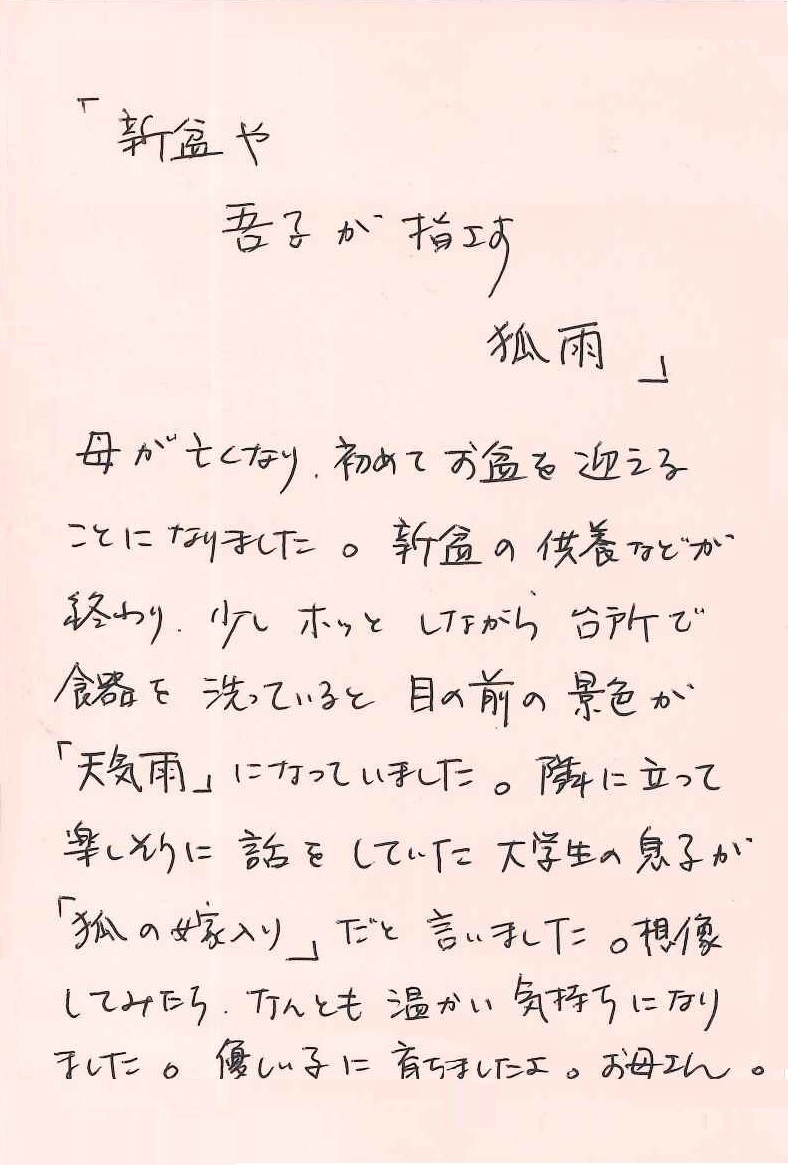 「新盆や
吾子が指さす
狐雨」
母が亡くなり、初めてお盆を迎える
ことになりました。新盆の供養などが
終わり、少しホッとしながら台所で
食器を洗っていると目の前の景色が
「天気雨」になっていました。隣に立って
楽しそうに話をしていた大学生の息子が
「狐の嫁入り」だと言いました。想像
してみたら、なんとも温かい気持ちになり
ました。優しい子に育ちましたよ。お母さん。